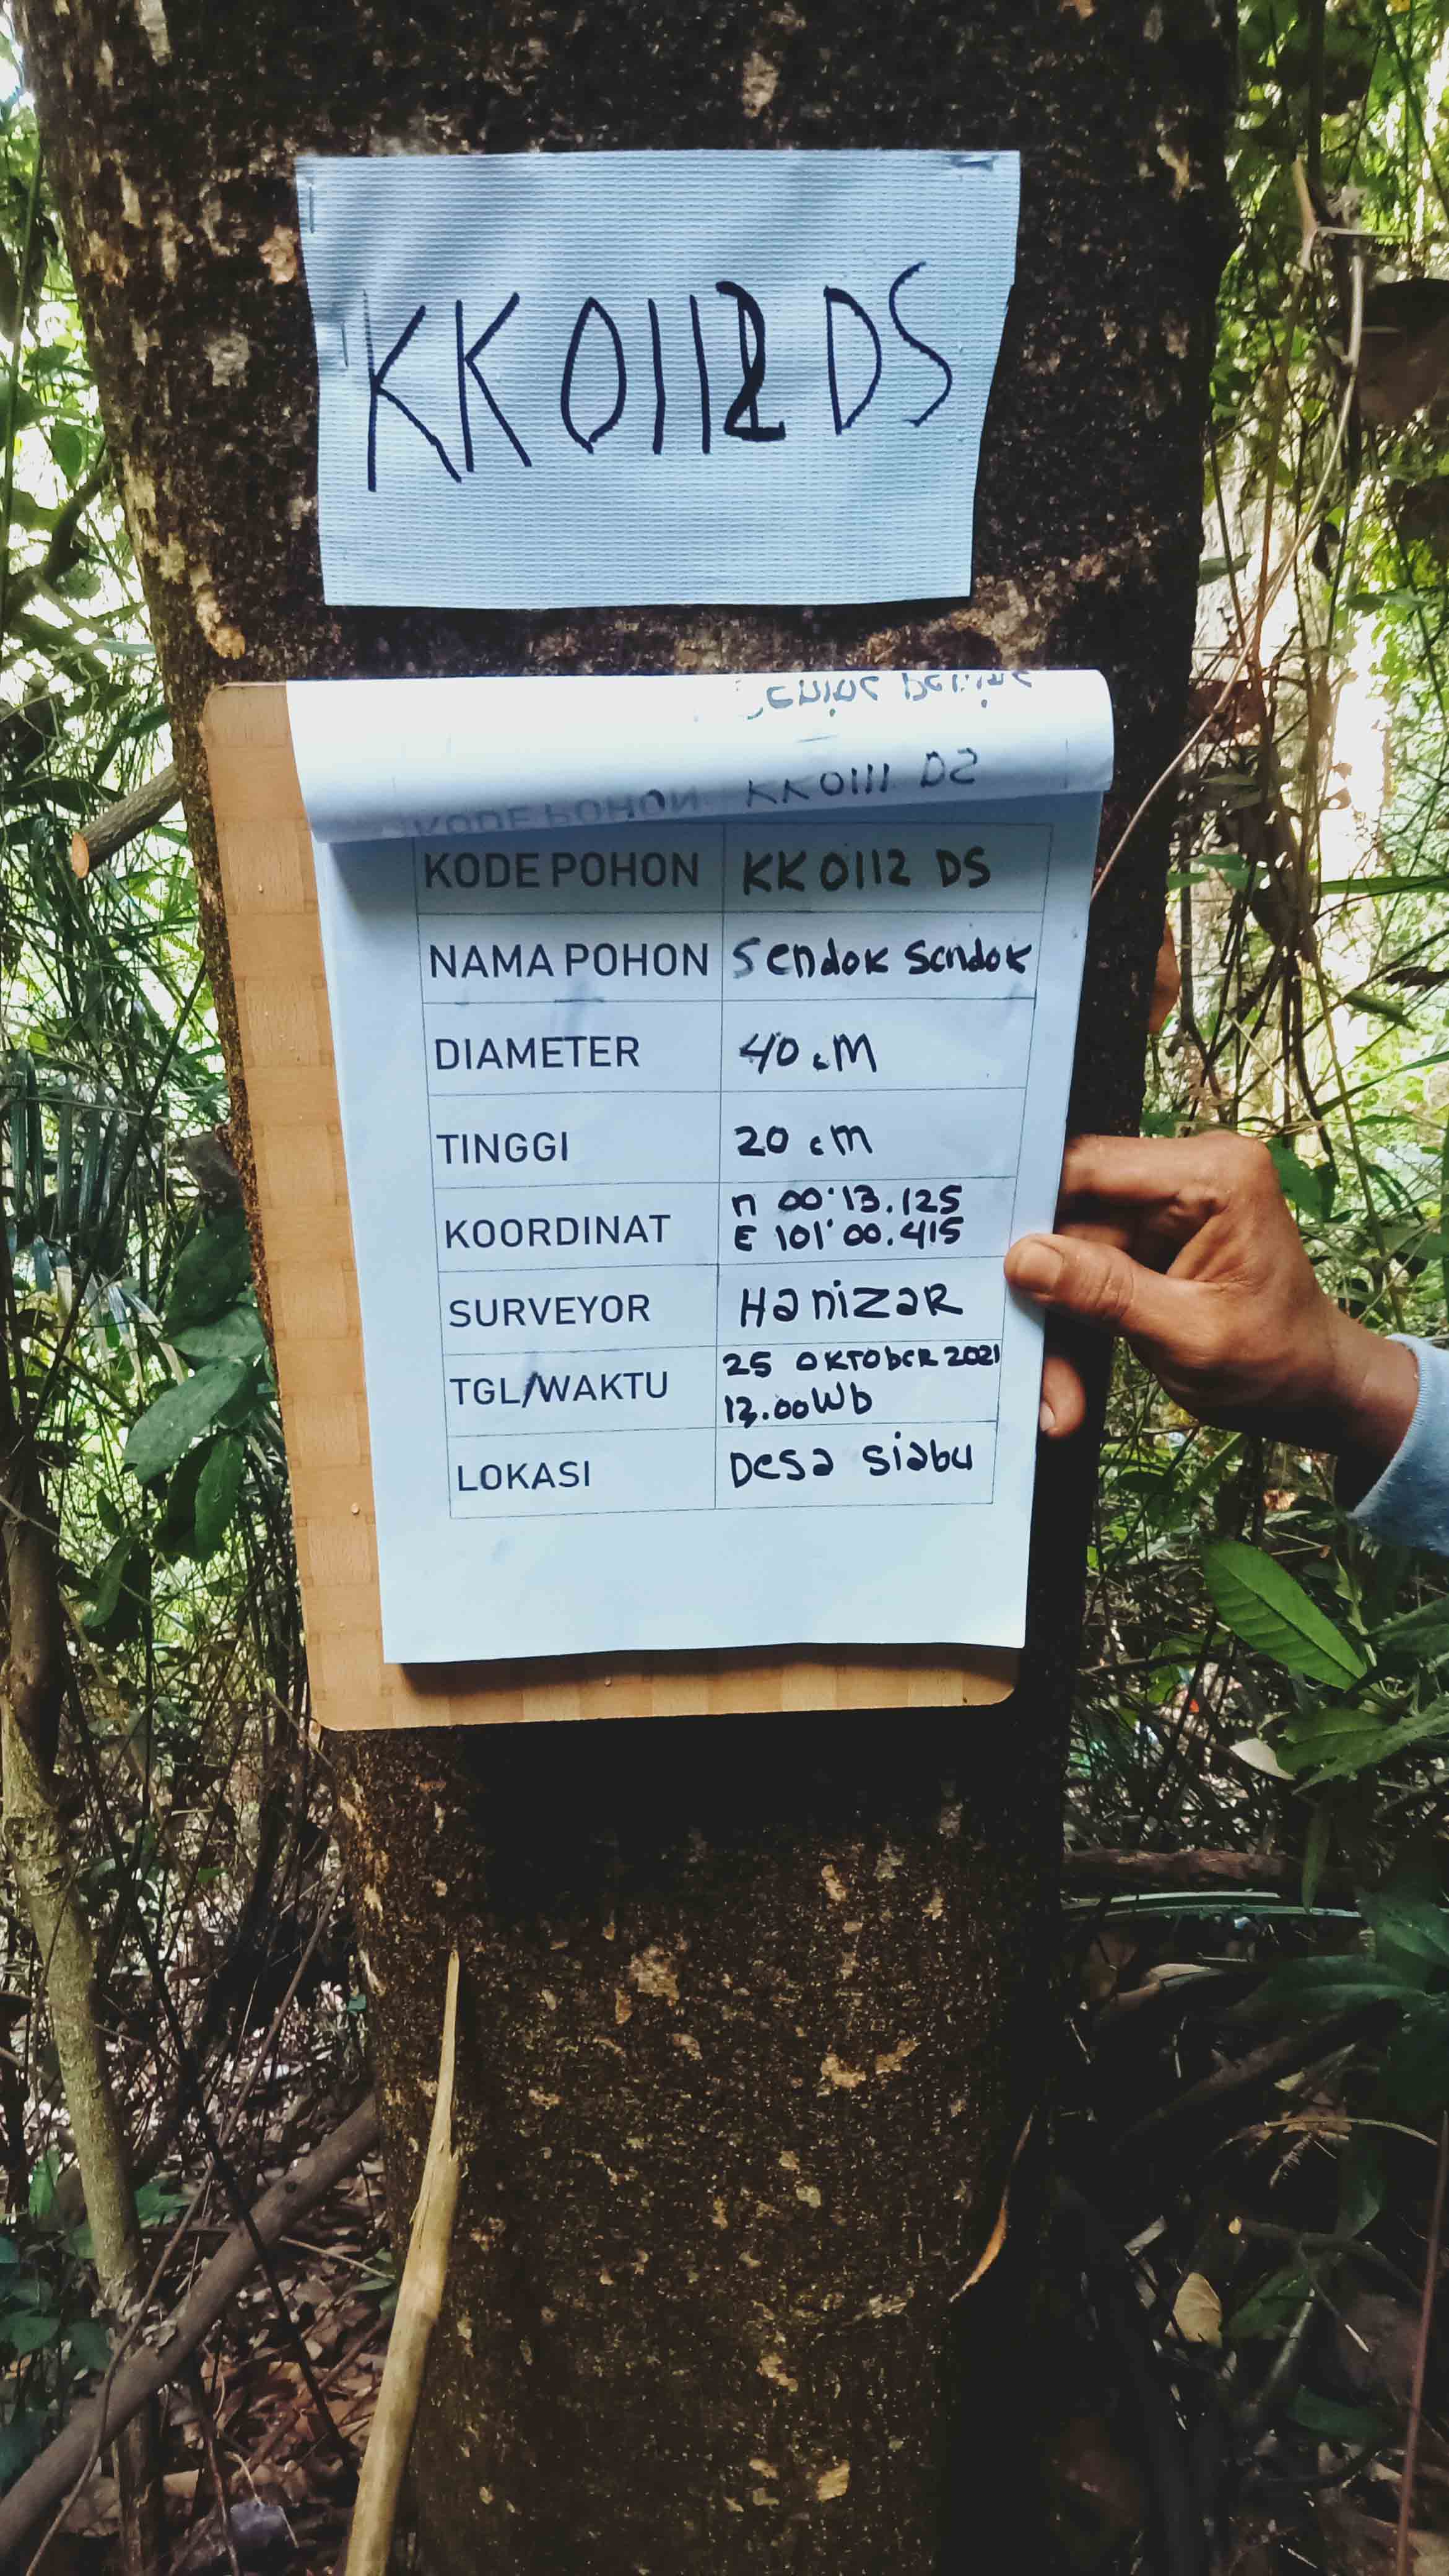 KK 0112 DS
KK 0111 DS
KODE POHON KK 0112 DS
NAMA POHON Sendok Sendok
DIAMETER 40 cM
TINGGI 20 cM
KOORDINAT n 00°13.125
E 101°00.415
SURVEYOR HanizaR
TGL/WAKTU 25 OKTOBER 2021
12.00 Wb
LOKASI Desa Siabu